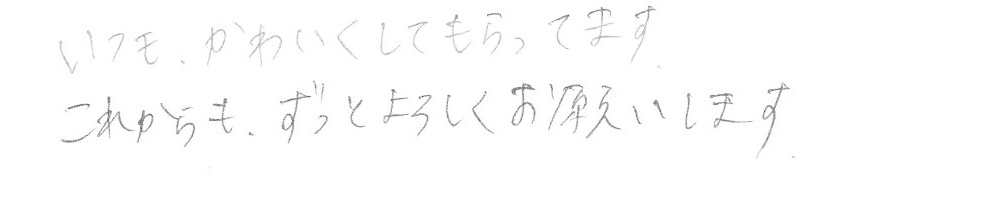 いつも、かわいくしてもらってます。
これからも、ずっとよろしくお願いします。